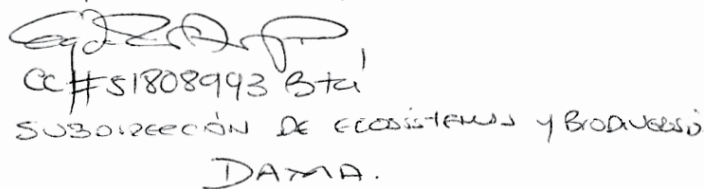 CC #51808993 Btá
SUBDIRECCIÓN DE ECOSISTEMAS Y BIODIVERSID
DAMA.